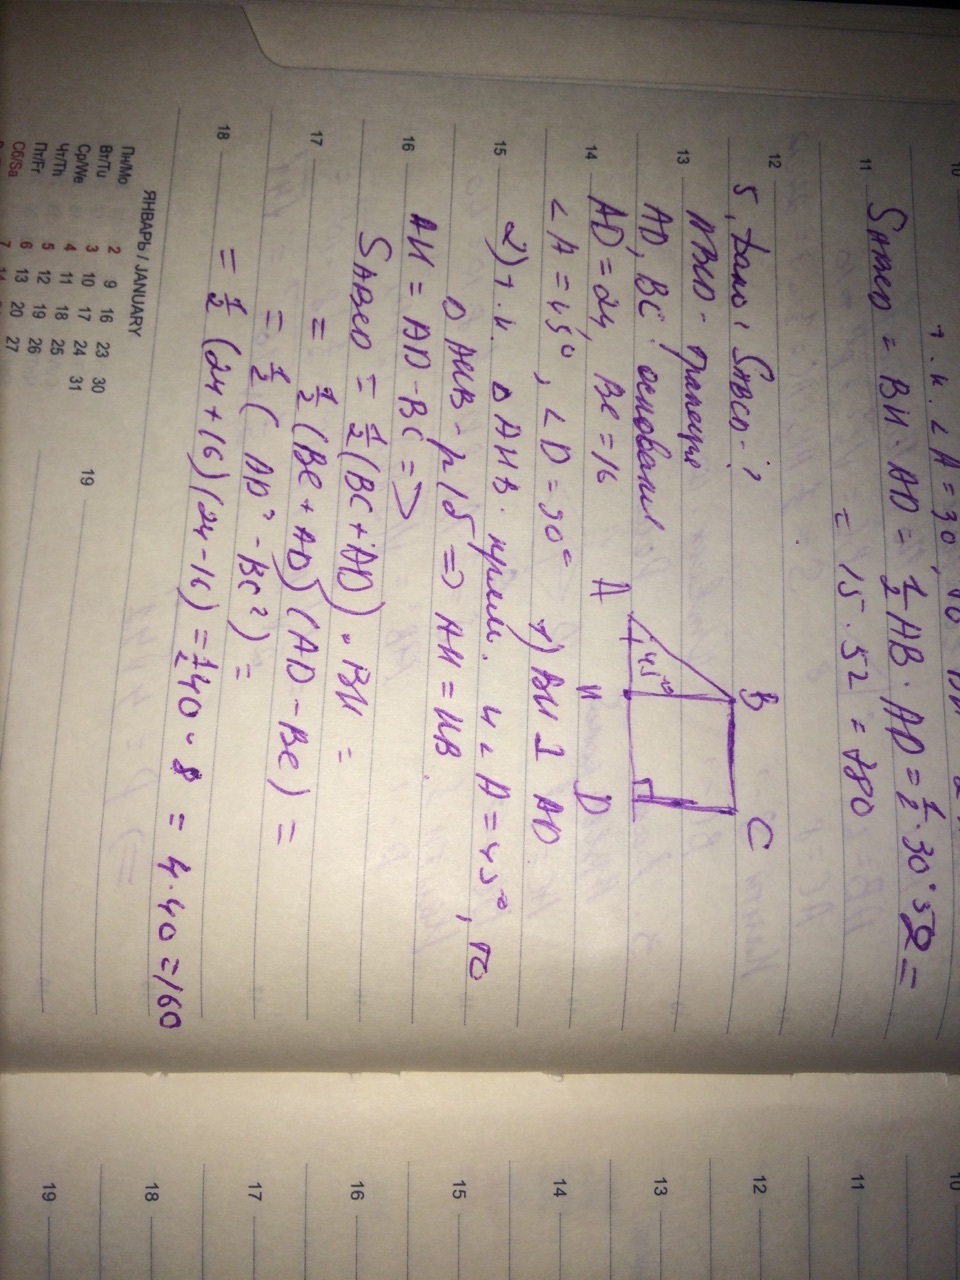 т.к. ∠A = 30°, то BH
SABCD = BH · AD = 1/2 AB · AD = 1/2 · 30 · 52 =
= 15 · 52 = 780
5. Дано: SABCD - ?
ABCD - трапеция
AD, BC: основания
AD = 24, BC = 16
∠A = 45°, ∠D = 90°
A B C D H 45°
1) BH ⊥ AD
2) т.к. △ AHB - прям. и ∠A = 45°, то
△ AHB - р/б => AH = HB
AH = AD - BC =>
SABCD = 1/2 (BC + AD) · BH =
= 1/2 (BC + AD) (AD - BC) =
= 1/2 (AD² - BC²) =
= 1/2 (24 + 16) (24 - 16) = 1/2 40 · 8 = 4 · 40 = 160
10
11
12
13
14
15
16
17
18
19
ЯНВАРЬ / JANUARY
Пн/Mo 2 9 16 23 30
Вт/Tu 3 10 17 24 31
Ср/We 4 11 18 25
Чт/Th 5 12 19 26
Пт/Fr 6 13 20 27
Сб/Sa 7 14
10
11
12
13
14
15
16
17
18
19